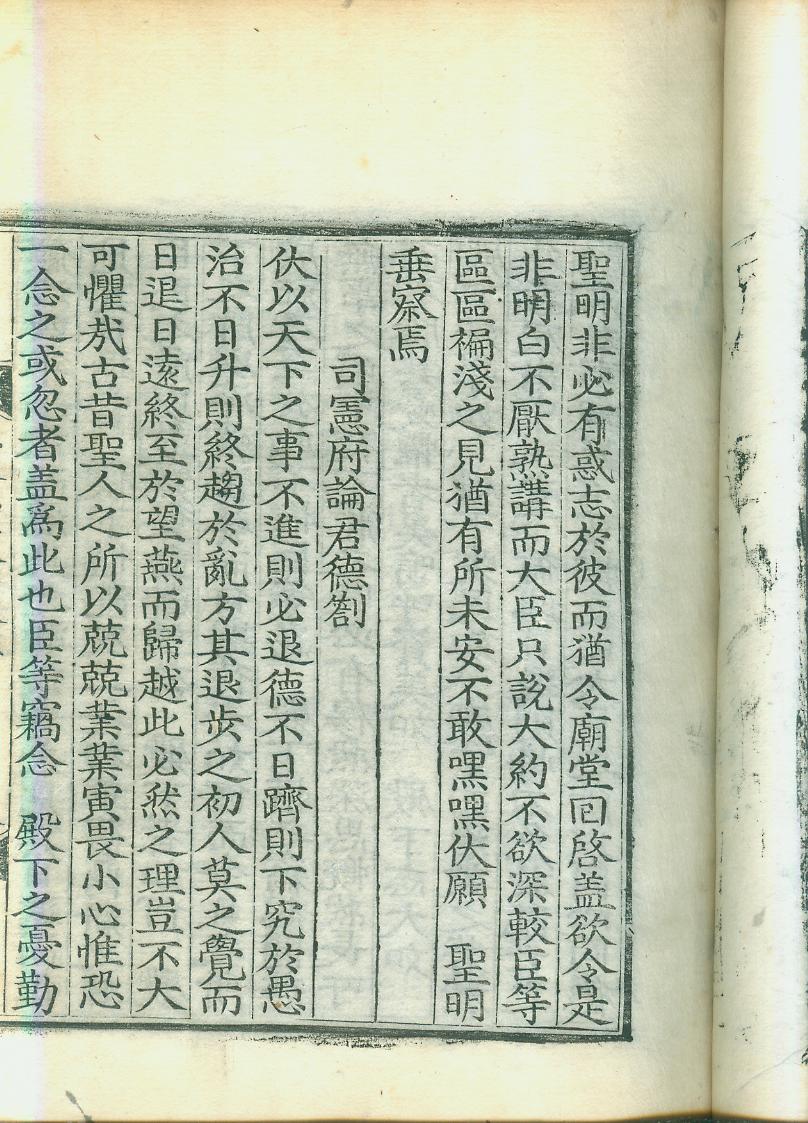 聖明非必有惑志於彼而猶令廟堂回啓盖欲令是
非明白不厭熟講而大臣只說大約不欲深較臣等
區區褊淺之見猶有所未安不敢嘿嘿伏願　聖明
垂察焉
司憲府論君德劄
伏以天下之事不進則必退德不日躋則下究於愚
治不日升則終趨於亂方其退步之初人莫之覺而
日退日遠終至於望燕而歸越此必然之理豈不大
可懼㢤古昔聖人之所以兢兢業業寅畏小心惟恐
一念之或忽者盖爲此也臣等竊念　殿下之憂勤